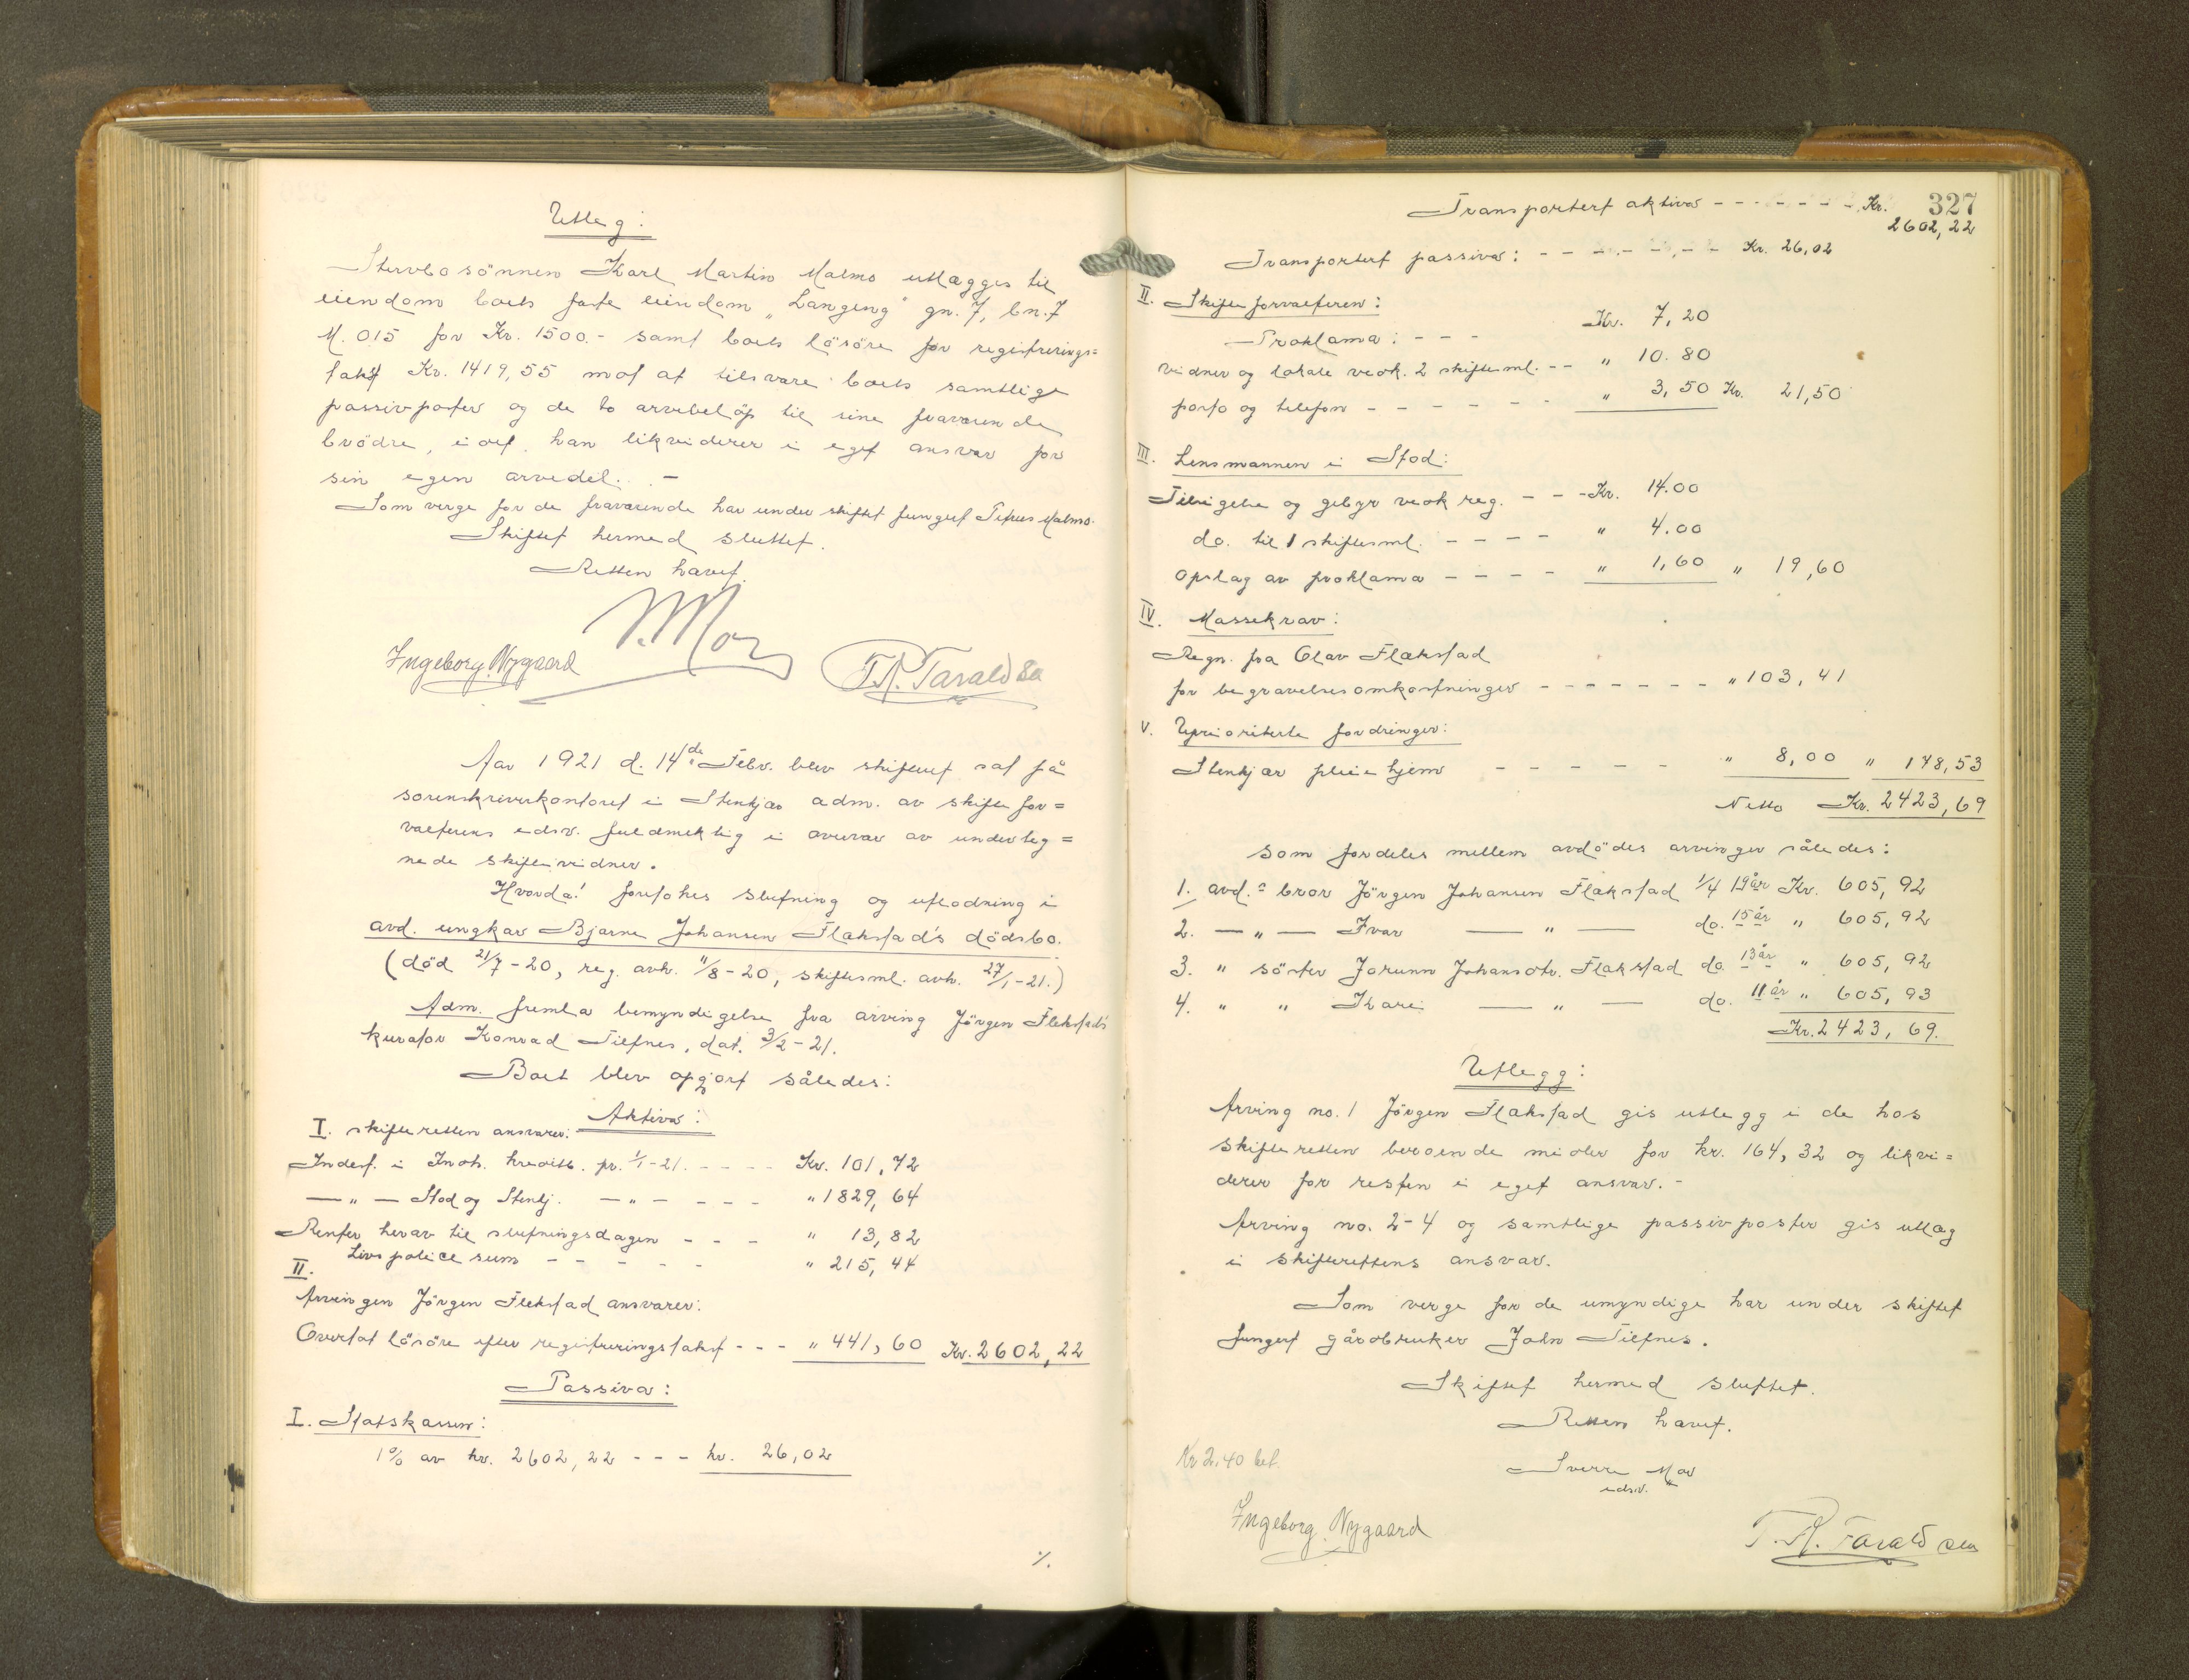 Utleg:
Stervbosönnen Karl Martin Malmo utlægges til
eiendom boets faste eiendom „Langeng" gn. 7, bn. 7
M. 0.15 for Kr. 1500.- samt boets lösöre for registrerings=
takst Kr. 1419,55 mot at tilsvare boets samtlige
passivposter og de to arvebelöp til sine fraværende
brödre, idet han likviderer i eget ansvar for
sin egen arvedel. -
Som verge for de fraværende har under skiftet fungert Petrus Malmo.
Skiftet hermed sluttet.
Retten hævet.
S. Mor
Ingeborg Nygaard
T. R. Taraldsen
Aar 1921 d. 14de Febr. blev skifteret sat på
sorenskriverkontoret i Stenkjær adm. av skiftefor=
valterens edsv. fuldmektig i overvær av underteg=
nede skiftevidner.
Hvorda! foretokes slutning og utlodning i
avd. ungkar Bjarne Johansen Flækstad's dödsbo.
(död 21/7-20, reg. avh. 11/8-20, skiftesml. avh. 27/1-21.)
Adm. fremla bemyndigelse fra arving Jörgen Flekstad's
kurator Konrad Tiltnes, dat. 3/2-21.
Boet blev opgjort således:
Aktiva:
I. skifteretten ansvarer:
Indest. i Indh. kreditb. pr. 1/1-21. - - - - Kr. 101,72
— " — Stod og Stenkj. — " — - - - " 1829,64
Renter herav til slutningsdagen - - - " 13,82
Livspolice sum - - - - - " 215,44
II.
Arvingen Jörgen Flekstad ansvarer:
Overtat lösöre efter registreringstakst - - - " 441,60 Kr. 2602,22
Passiva:
I. Statskassen:
1% av kr. 2602,22 - - - kr. 26,02
%.
327
Transportert aktiva - - - - - - - Kr.
2602,22
Transportert passiva: - - - - - - - Kr. 26,02
II. Skifteforvalteren:
Proklama: - - - Kr. 7,20
vidner og lokale vedk. 2 skiftesml. - - " 10.80
porto og telefon - - - - - - " 3,50 Kr. 21,50
III. Lensmannen i Stod:
Tilsigelse og gebyr vedk reg. - - - Kr. 14.00
do. til 1 skiftesml. - - - - " 4.00
Opslag av proklama - - - - " 1,60 " 19,60
IV. Massekrav:
Regn. fra Olav Flækstad
for begravelsesomkostninger - - - - - - - " 103,41
V. Uprioriterte fordringer:
Stenkjær pleiehjem - - - - - " 8,00 " 178,53
Netto Kr. 2423,69
som fordeles mellem avdödes arvinger således:
1. avd.s bror Jörgen Johansen Flækstad 1/4 19 år Kr. 605,92
2. — " — Ivar — " — do. 15 år " 605,92
3. " söster Jorunn Johansdtr. Flakstad do. 13 år " 605,92
4. " " Kari — " — do. 11 år " 605,93
Kr. 2423,69.
Utlegg:
Arving no. 1 Jörgen Flakstad gis utlegg i de hos
skifteretten beroende midler for kr. 164,32 og likvi=
derer for resten i eget ansvar. -
Arving no. 2-4 og samtlige passivposter gis utlæg
i skifterettens ansvar.
Som verge for de umyndige har under skiftet
fungert gårdbruker John Tiltnes.
Skiftet hermed sluttet.
Retten hævet.
Kr 2,40 bet.
Sverre Mor
edsv.
Ingeborg Nygaard
T. R. Taraldsen